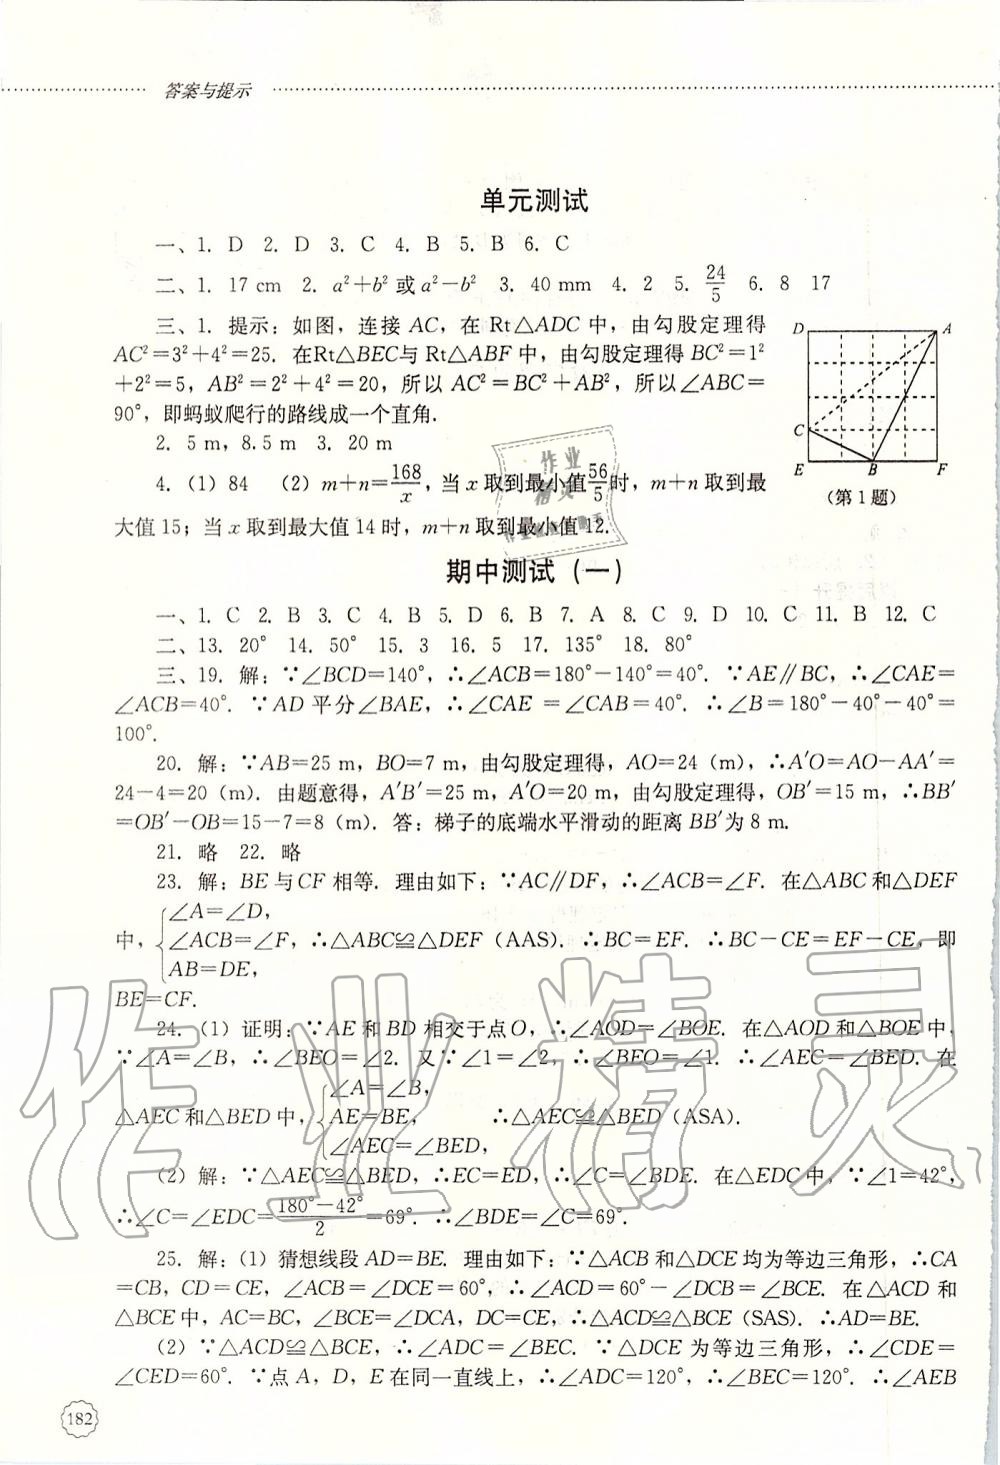 答案与提示
单元测试
一、1. D 2. D 3. C 4. B 5. B 6. C
二、1. 17 cm 2. a²+b² 或 a²－b² 3. 40 mm 4. 2 5. 24/5 6. 8 17
三、1. 提示：如图，连接 AC，在 Rt△ADC 中，由勾股定理得
AC²=3²+4²=25. 在Rt△BEC与 Rt△ABF 中，由勾股定理得 BC²=1²
+2²=5，AB²=2²+4²=20，所以 AC²=BC²+AB²，所以∠ABC=
90°，即蚂蚁爬行的路线成一个直角.
2. 5 m，8.5 m 3. 20 m
4.（1）84 （2）m+n=168/x，当 x 取到最小值 56/5 时，m+n 取到最
大值 15；当 x 取到最大值 14 时，m+n 取到最小值 12.
D A
C
E B F
（第 1 题）
期中测试（一）
一、1. C 2. B 3. C 4. B 5. D 6. B 7. A 8. C 9. D 10. C 11. B 12. C
二、13. 20° 14. 50° 15. 3 16. 5 17. 135° 18. 80°
三、19. 解：∵∠BCD=140°，∴∠ACB=180°－140°=40°. ∵AE∥BC，∴∠CAE=
∠ACB=40°. ∵AD 平分∠BAE，∴∠CAE =∠CAB=40°. ∴∠B=180°－40°－40°=
100°.
20. 解：∵AB=25 m，BO=7 m，由勾股定理得，AO=24（m），∴A′O=AO－AA′=
24－4=20（m）. 由题意得，A′B′=25 m，A′O=20 m，由勾股定理得，OB′=15 m，∴BB′
=OB′－OB=15－7=8（m）. 答：梯子的底端水平滑动的距离 BB′为 8 m.
21. 略 22. 略
23. 解：BE 与 CF 相等. 理由如下：∵AC∥DF，∴∠ACB=∠F. 在△ABC 和△DEF
∠A=∠D，
中，∠ACB=∠F，∴△ABC≌△DEF（AAS）. ∴BC=EF. ∴BC－CE=EF－CE，即
AB=DE，
BE=CF.
24.（1）证明：∵AE 和 BD 相交于点 O，∴∠AOD=∠BOE. 在△AOD 和△BOE 中，
∵∠A=∠B，∴∠BEO=∠2. 又∵∠1=∠2，∴∠BEO=∠1. ∴∠AEC=∠BED. 在
∠A=∠B，
△AEC 和△BED 中，AE=BE， ∴△AEC≌△BED（ASA）.
∠AEC=∠BED，
（2）解：∵△AEC≌△BED，∴EC=ED，∴∠C=∠BDE. 在△EDC 中，∵∠1=42°，
∴∠C=∠EDC=180°－42°/2=69°. ∴∠BDE=∠C=69°.
25. 解：（1）猜想线段 AD=BE. 理由如下：∵△ACB 和△DCE 均为等边三角形，∴CA
=CB，CD=CE，∠ACB=∠DCE=60°，∴∠ACD=60°－∠DCB=∠BCE. 在△ACD 和
△BCE 中，AC=BC，∠BCE=∠DCA，DC=CE，∴△ACD≌△BCE（SAS）. ∴AD=BE.
（2）∵△ACD≌△BCE，∴∠ADC=∠BEC. ∵△DCE 为等边三角形，∴∠CDE=
∠CED=60°. ∵点 A，D，E 在同一直线上，∴∠ADC=120°，∴∠BEC=120°. ∴∠AEB
182
作业精灵